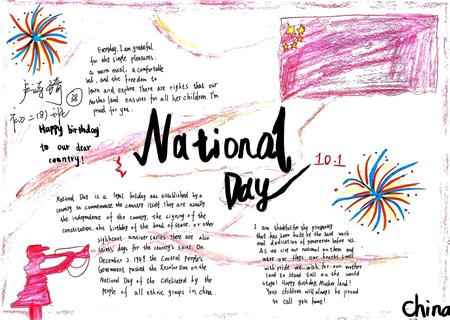 Everyday, I am grateful
for the simple pleasures.
a warm meal, a comfortable
bed, and the freedom to
learn and explore. These are rights that our
Motherland ensures for all her children. I'm
proud for you.
38
Happy birthday
to our dear
country!
National
Day
10.1
National Day is a legal holiday was established by a
country to commemorate the country itself. They are usually
the independence of the country, the signing of the
constitution, the birthday of the head of state, or other
significant anniversaries. There are also
saints' days for the country's saint. On
December 2, 1949, the Central People's
Government passed the Resolution on the
National Day of the Celebrated by the
people of all ethnic groups in china.
I am thankful for the prosperity
that has been built by the hard work
and dedication of generations before us.
As we sing our national anthem and
wave our flags, our hearts swell
with pride. We wish for our mother
land to stand tall on the world
stage! Happy Birthday, Motherland!
Your children will always be proud
to call you home!
China